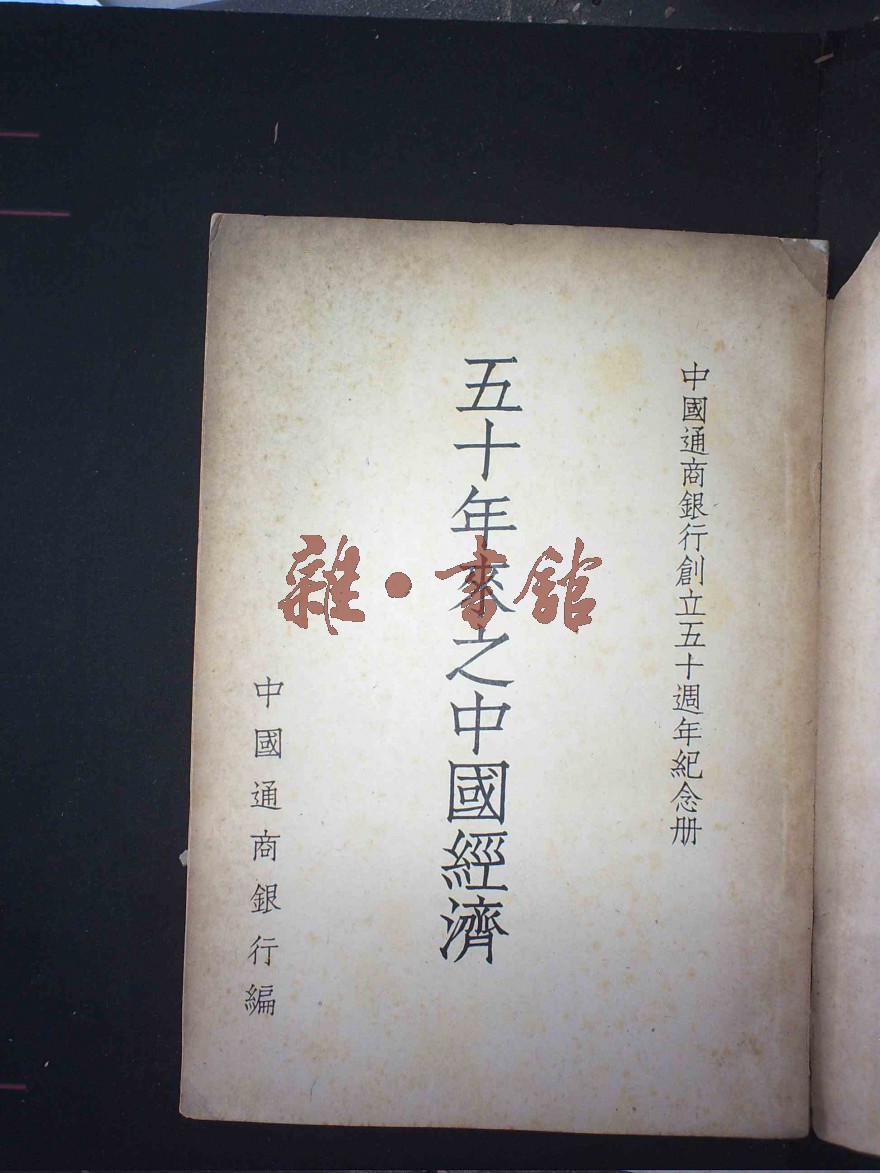 中國通商銀行創立五十週年紀念册
五十年來之中國經濟
中國通商銀行編
雜·書館